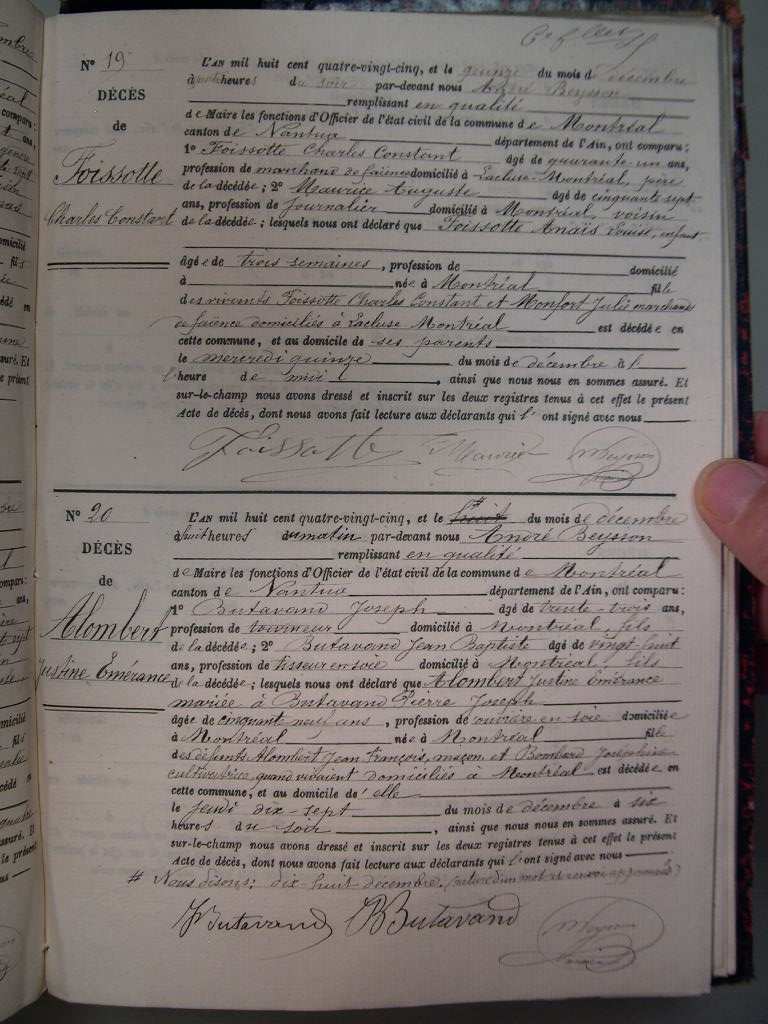 Nº 19
DÉCÈS
de
Foissotte
Charles Constant
L'AN mil huit cent quatre-vingt-cinq, et le quinze du mois de décembre
à heures du soir par-devant nous André Beysson
remplissant en qualité
de Maire les fonctions d'Officier de l'état civil de la commune de Montréal
canton de Nantua département de l'Ain, ont comparu:
1º Foissotte Charles Constant âgé de quarante-un ans,
profession de marchand de faïence domicilié à Lacluse-Montréal, père
de la décédée; 2º Maurice Auguste âgé de cinquante sept
ans, profession de journalier domicilié à Montréal, voisin
de la décédée; lesquels nous ont déclaré que Foissotte Anaïs Louise, enfant
âgée de trois semaines, profession de domicilié
à née à Montréal fille
des vivants Foissotte Charles Constant et Monfort Julie marchands
de faïence domiciliés à Lacluse Montréal est décédée en
cette commune, et au domicile de ses parents
le mercredi quinze du mois de décembre à l
l'heure de midi, ainsi que nous nous en sommes assuré. Et
sur-le-champ nous avons dressé et inscrit sur les deux registres tenus à cet effet le présent
Acte de décès, dont nous avons fait lecture aux déclarants qui l'ont signé avec nous
Foissotte Maurice
Nº 20
DÉCÈS
de
Alombert
Justine Émérance
L'AN mil huit cent quatre-vingt-cinq, et le # huit du mois de décembre
à huit heures du matin par-devant nous André Beysson
remplissant en qualité
de Maire les fonctions d'Officier de l'état civil de la commune de Montréal
canton de Nantua département de l'Ain, ont comparu:
1º Butavand Joseph âgé de trente-trois ans,
profession de tourneur domicilié à Montréal, fils
de la décédée; 2º Butavand Jean Baptiste âgé de vingt huit
ans, profession de tisseur en soie domicilié à Montréal, fils
de la décédée; lesquels nous ont déclaré que Alombert Justine Émérance
mariée à Butavand Pierre Joseph
âgée de cinquante neuf ans, profession de ouvrière en soie domiciliée
à Montréal née à Montréal fille
des défunts Alombert Jean François, maçon et Bombard Josephine
cultivatrice quand vivaient domiciliés à Montréal est décédée en
cette commune, et au domicile d'elle
le jeudi dix-sept du mois de décembre à six
heures du soir, ainsi que nous nous en sommes assuré. Et
sur-le-champ nous avons dressé et inscrit sur les deux registres tenus à cet effet le présent
Acte de décès, dont nous avons fait lecture aux déclarants qui l'ont signé avec nous
# Nous disons: dix-huit décembre. (rature d'un mot et renvoi approuvés)
Butavand Butavand